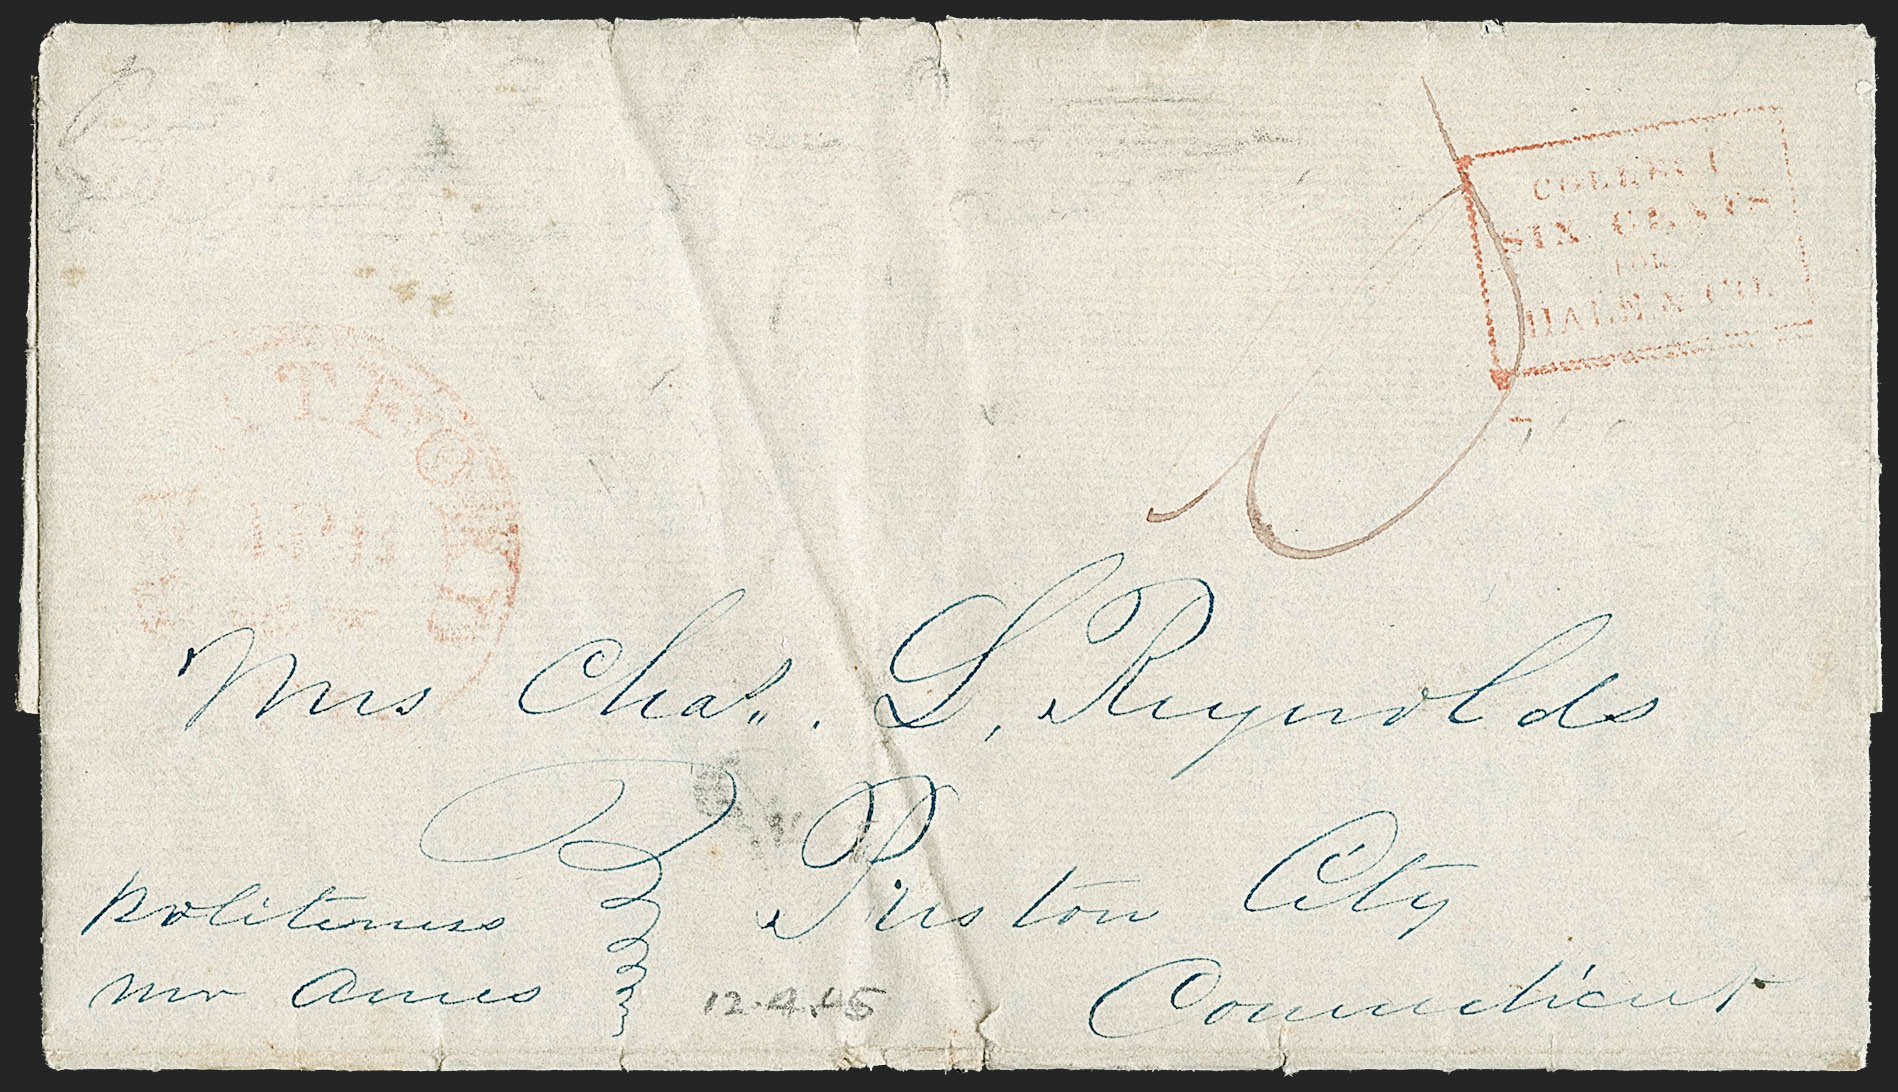 COLLECT
SIX CENTS
FOR
HALE & CO.
APR 11
Mrs Chas. L. Reynolds
Preston City
Connecticut
politeness
mr Ames
12.4.45